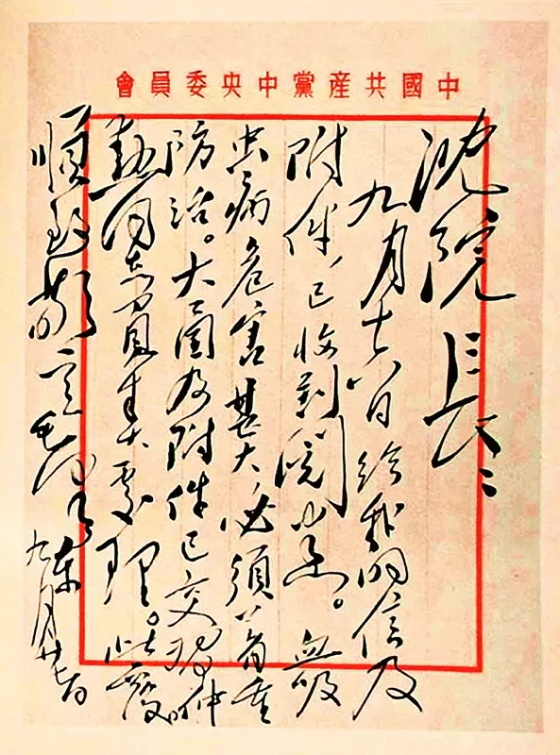 中國共産黨中央委員會
沈院長：
九月十六日給我的信及
附件，已收到閱悉。血吸
虫病危害甚大，必須着重
防治。大函及附件已交習仲
勳同志負責处理。此覆。
順致敬意
毛澤東
九月廿七日